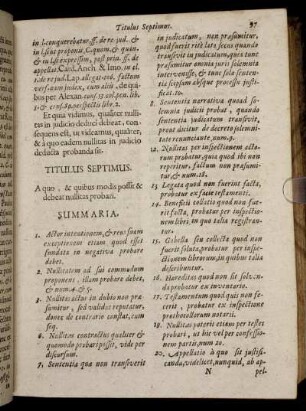 Titulus Septimus. 97
in l. conquerebatur. ff. de re jud. &
in l. si us proponis, C. quom. & quan.
& in l. si expressim, post prin. ff. de
appellat. Card. Anch. & Imo. in
factum
versum autem vice,
per Alexan. conf. 19. vol. pen. lib.
Et quia vidimus, qualiter nulli-
tas in judicio dedici debeat, con-
sequens est, ut videamus, qualiter,
& à quo eadem nullitas in judicio
deducta probanda sit.
TITULUS SEPTIMUS.
A quo, & quibus modis possit &
debeat nullitas probari.
SUMMARIA.
1. Actor intentionem, & reus suam
exceptionem etiam quod esset
fundata in negativa probare
debet.
2. Nullitatem ad sui commodum
proponens, illam probare debet,
& num. 4. & 5.
3. Nullitas actus in dubio non præ-
sumitur, sed validus reputatur,
donec de contrario constat, num.
seq.
6. Nullitas contractus qualiter &
quomodo probari possit, vide per
discursum.
7. Sententia qua non transiverit
in judicatum, non præsumitur,
quod fuerit ritè lata secus quando
transivit in judicatum, quia tunc
præsumitur omnia juris solemnia
intervenisse, & tunc sola senten-
tia sufficit.
8. Sententia narrativa quod
judicis probat, quando
sententia in judicatum transivit,
prout dicitur de decreto solemni-
tate renunciante, num. 9.
12. Nullitas per inspectionem acto-
rum probatur, quia quod ibi non
reperitur, factum non præsumi-
tur, & num. 18.
13 Legata quod non fuerint facta,
probatur ex facie testamenti.
14. Beneficii collatio quod non fue-
rit facta, probatur per inspectio-
nem libri, in quo talia registran-
tur.
15. Gabella seu collecta quod non
fuerit soluta, probatur per inspe-
ctionem librorum, in quibus talia
describuntur.
16. Hæreditas quod non sit solven-
do probatur ex inventario.
17. Testamentum quod quis non fe-
cerit, probatur ex inspectione
prothocollorum notarii.
18. Nullitas poterit etiam per testes
probari, ut hîc vel per confessio-
nem partis, num. 20.
20. Appellatio à quo sit justifi-
canda, videlicet, nunquid, ab ap-
N pel-